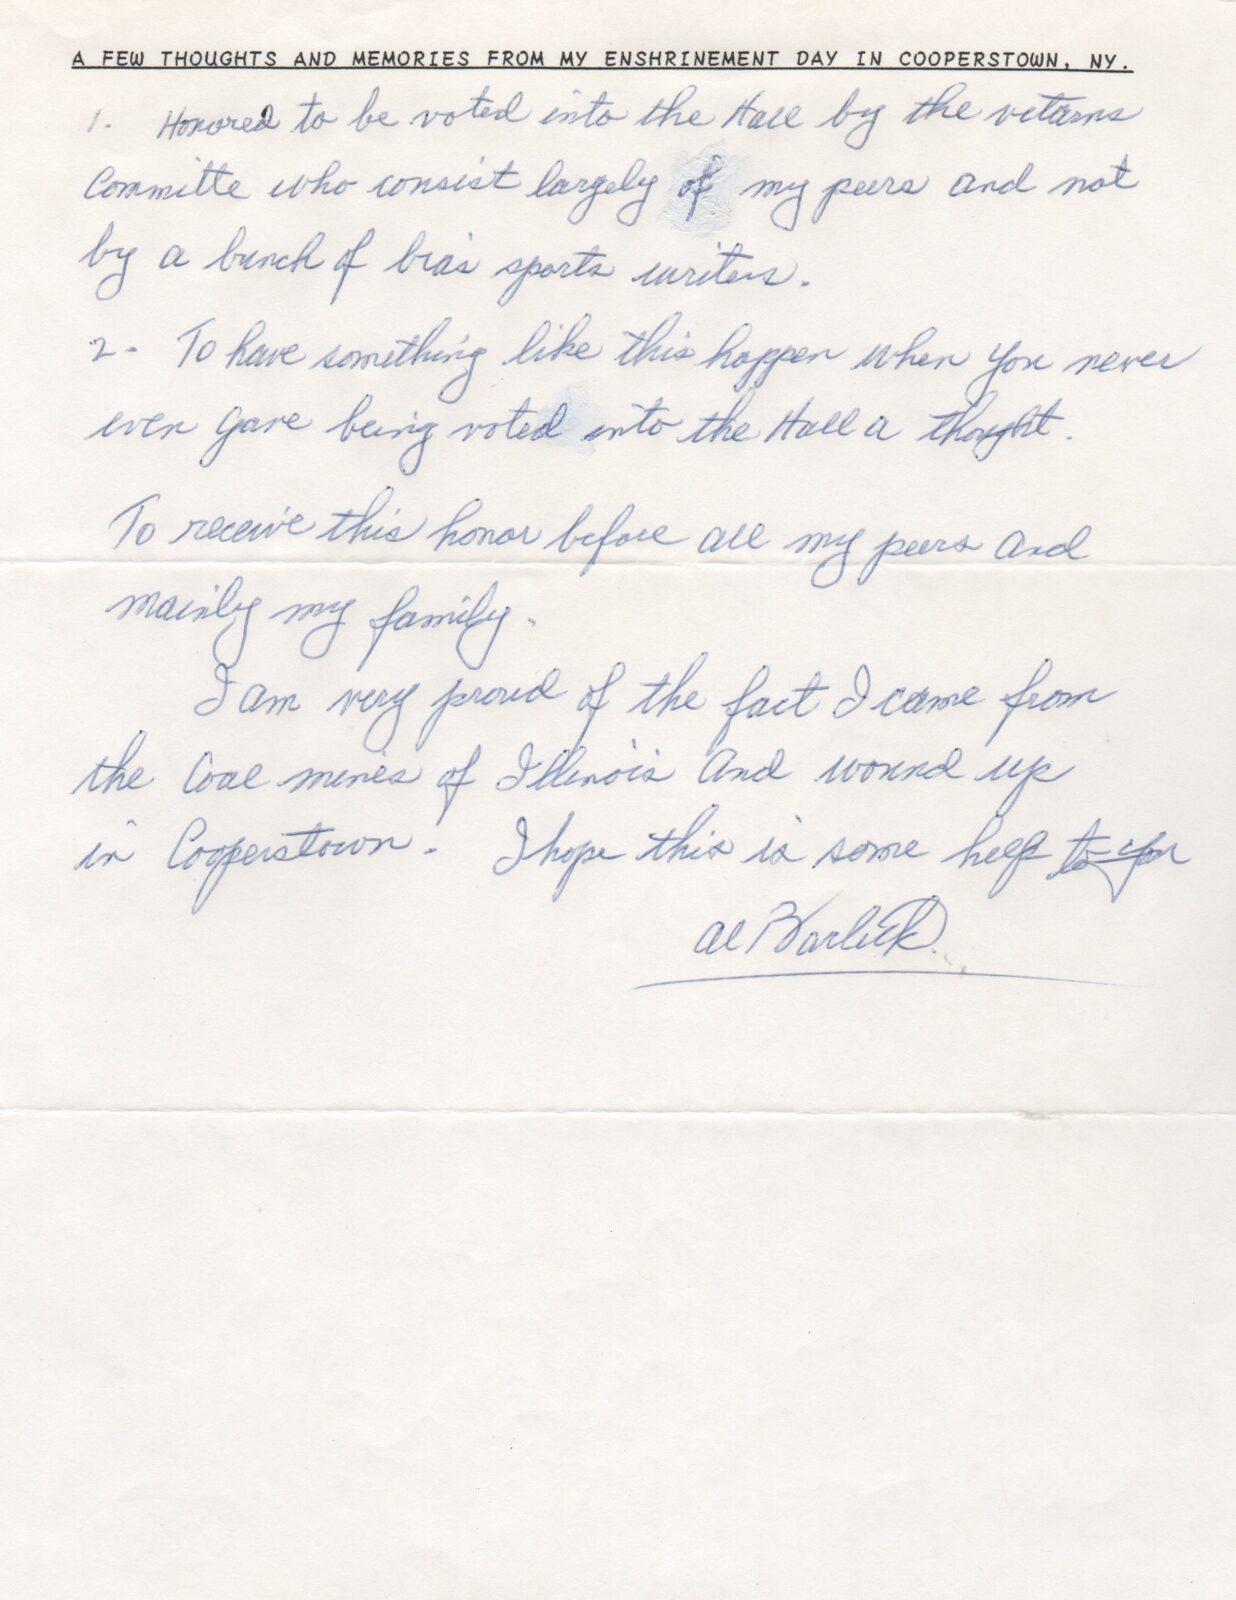 A FEW THOUGHTS AND MEMORIES FROM MY ENSHRINEMENT DAY IN COOPERSTOWN, NY.
1. Honored to be voted into the Hall by the vetarns
Committe who consist largely of my peers and not
by a bunch of bias sports writers.
2- To have something like this happen when you never
even gave being voted into the Hall a thought.
To receive this honor before all my peers and
mainly my family.
I am very proud of the fact I came from
the Coal mines of Illinois and wound up
in Cooperstown. I hope this is some help to you
Al Barlick